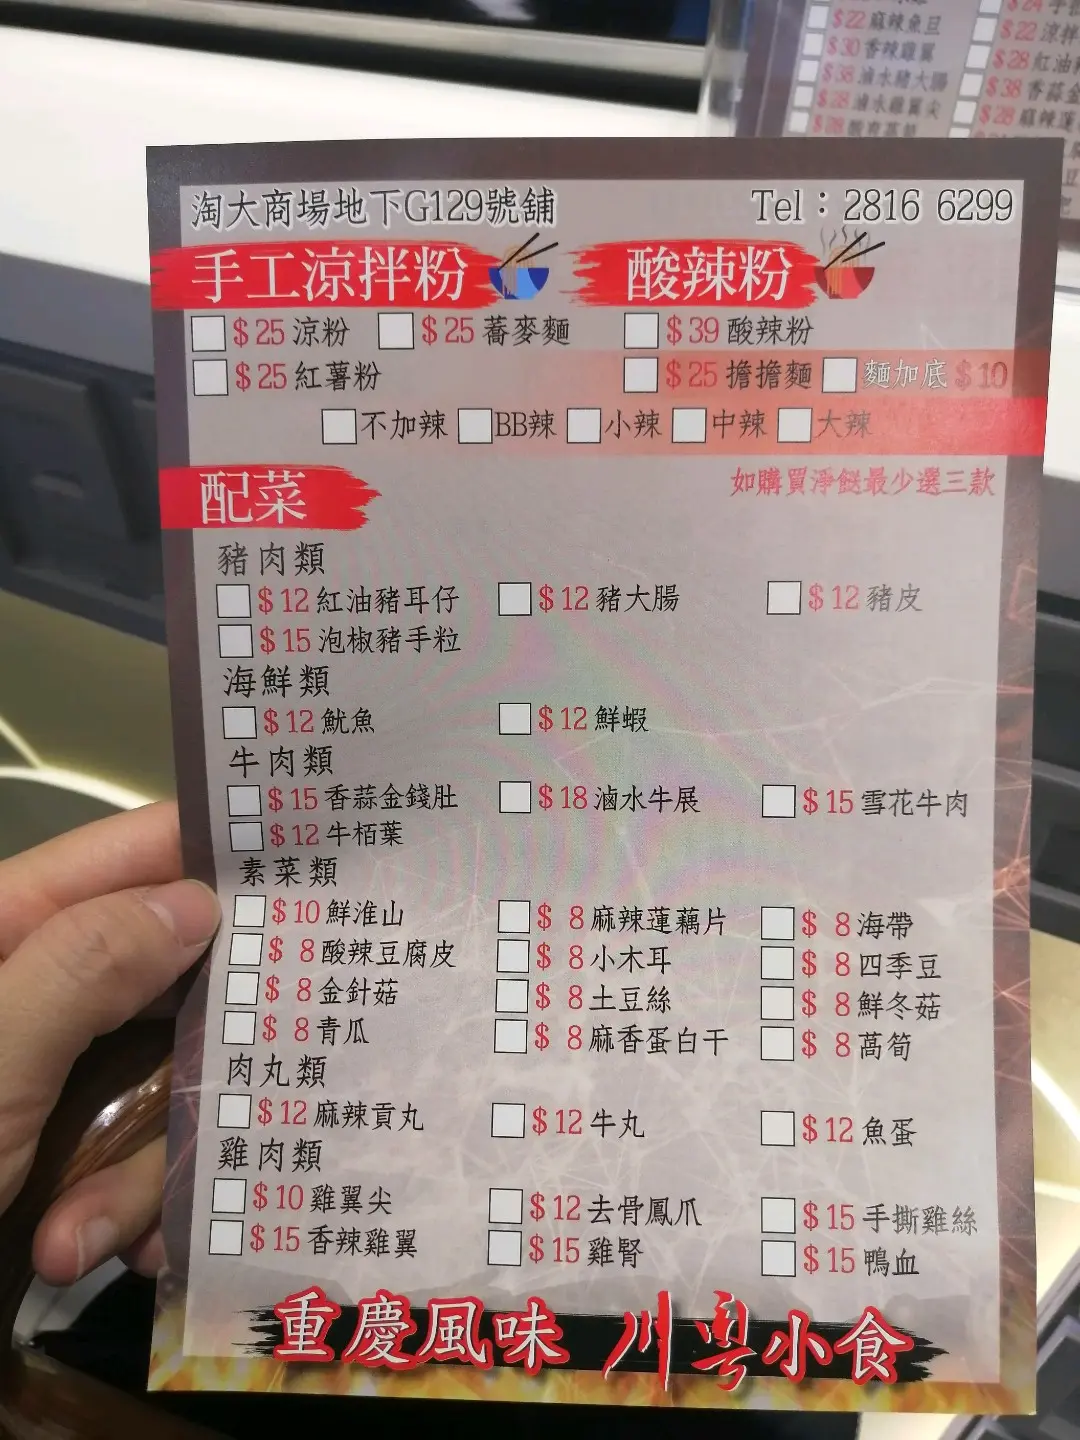 $22 麻辣魚旦
$30 香辣雞翼
$38 滷水豬大腸
$28 滷水雞翼尖
$22 涼拌
$28 紅油
$38 香蒜金
$28 麻辣蓮
淘大商場地下G129號舖 Tel：2816 6299
手工涼拌粉 酸辣粉
$25 涼粉 $25 蕎麥麵 $39 酸辣粉
$25 紅薯粉 $25 擔擔麵 麵加底 $10
不加辣 BB辣 小辣 中辣 大辣
配菜 如購買淨餸最少選三款
豬肉類
$12 紅油豬耳仔 $12 豬大腸 $12 豬皮
$15 泡椒豬手粒
海鮮類
$12 魷魚 $12 鮮蝦
牛肉類
$15 香蒜金錢肚 $18 滷水牛展 $15 雪花牛肉
$12 牛栢葉
素菜類
$10 鮮淮山 $ 8 麻辣蓮藕片 $ 8 海帶
$ 8 酸辣豆腐皮 $ 8 小木耳 $ 8 四季豆
$ 8 金針菇 $ 8 土豆絲 $ 8 鮮冬菇
$ 8 青瓜 $ 8 麻香蛋白干 $ 8 萵筍
肉丸類
$12 麻辣貢丸 $12 牛丸 $12 魚蛋
雞肉類
$10 雞翼尖 $12 去骨鳳爪 $15 手撕雞絲
$15 香辣雞翼 $15 雞腎 $15 鴨血
重慶風味 川粵小食